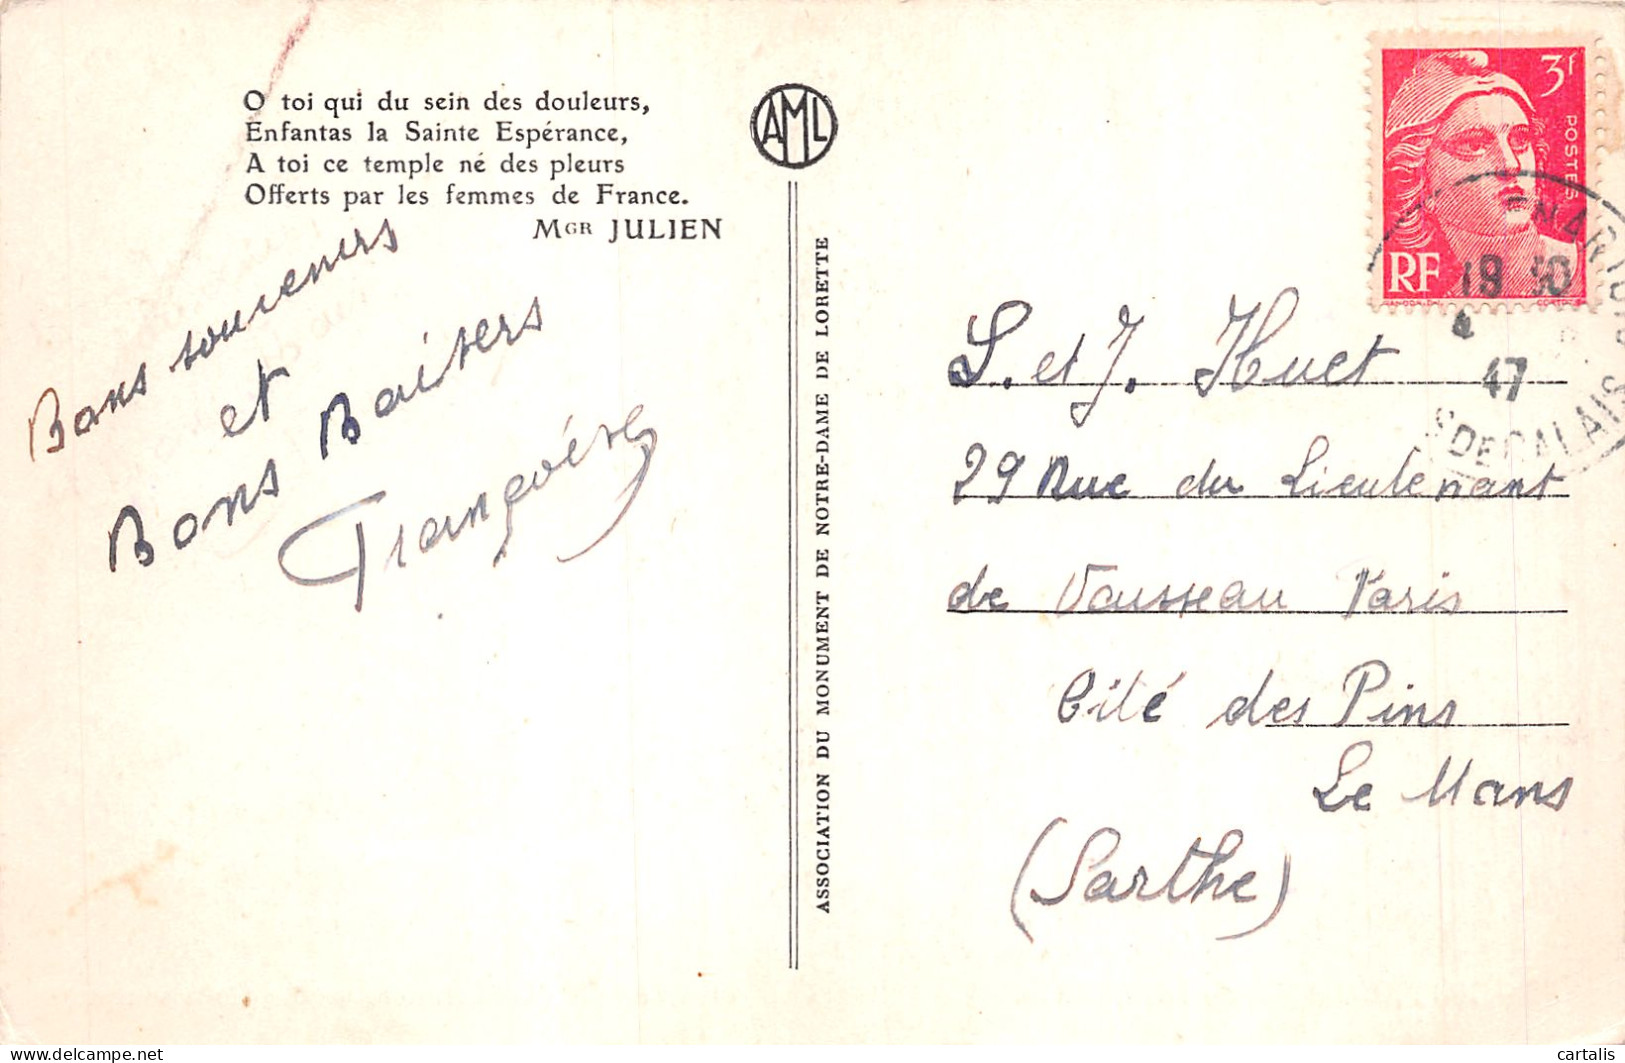 O toi qui du sein des douleurs,
Enfantas la Sainte Espérance,
A toi ce temple né des pleurs
Offerts par les femmes de France.
MGR JULIEN
Bons souvenirs
et
Bons Baisers
AML
ASSOCIATION DU MONUMENT DE NOTRE-DAME DE LORETTE
3F
POSTES
RF
19 30
47
S DE CALAIS
S. et J. Huet
29 Rue du Lieutenant
de Vausseau Paris
Cité des Pins
Le Mans
(Sarthe)
delcampe.net
cartalis